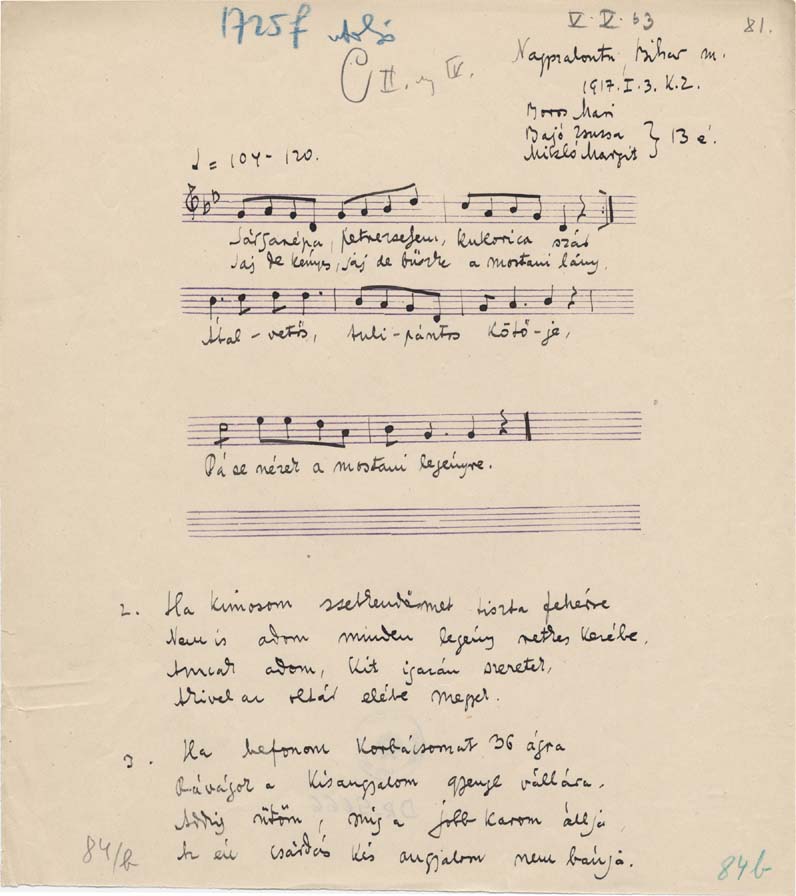 1725f utolsó
V. V. 63
81.
C II. és IV.
Nagyszalonta, Bihar m.
1917. I. 3. K. Z.
Boros Mari
Bajó Zsuzsa
Mikló Margit } 13 é.
♩ = 104 - 120.
Sárgarépa, petrezselem, kukorica szár
Jaj de kényes, jaj de büszke a mostani lány,
Által-vetős, tuli-pántos kötő-je,
Rá se nézek a mostani legényre.
2. Ha kimosom zsebkendőmet tiszta fehérre
Nem is adom minden legény retkes kezébe,
Annak adom, kit igazán szeretek,
Akivel az oltár elébe megyek.
3. Ha befonom korbácsomat 36 ágra
Rávágok a kisangyalom gyenge vállára,
Addig ütöm, míg a jobb karom állja,
Az én csárdás kis angyalom nem bánja.
84/b
84b